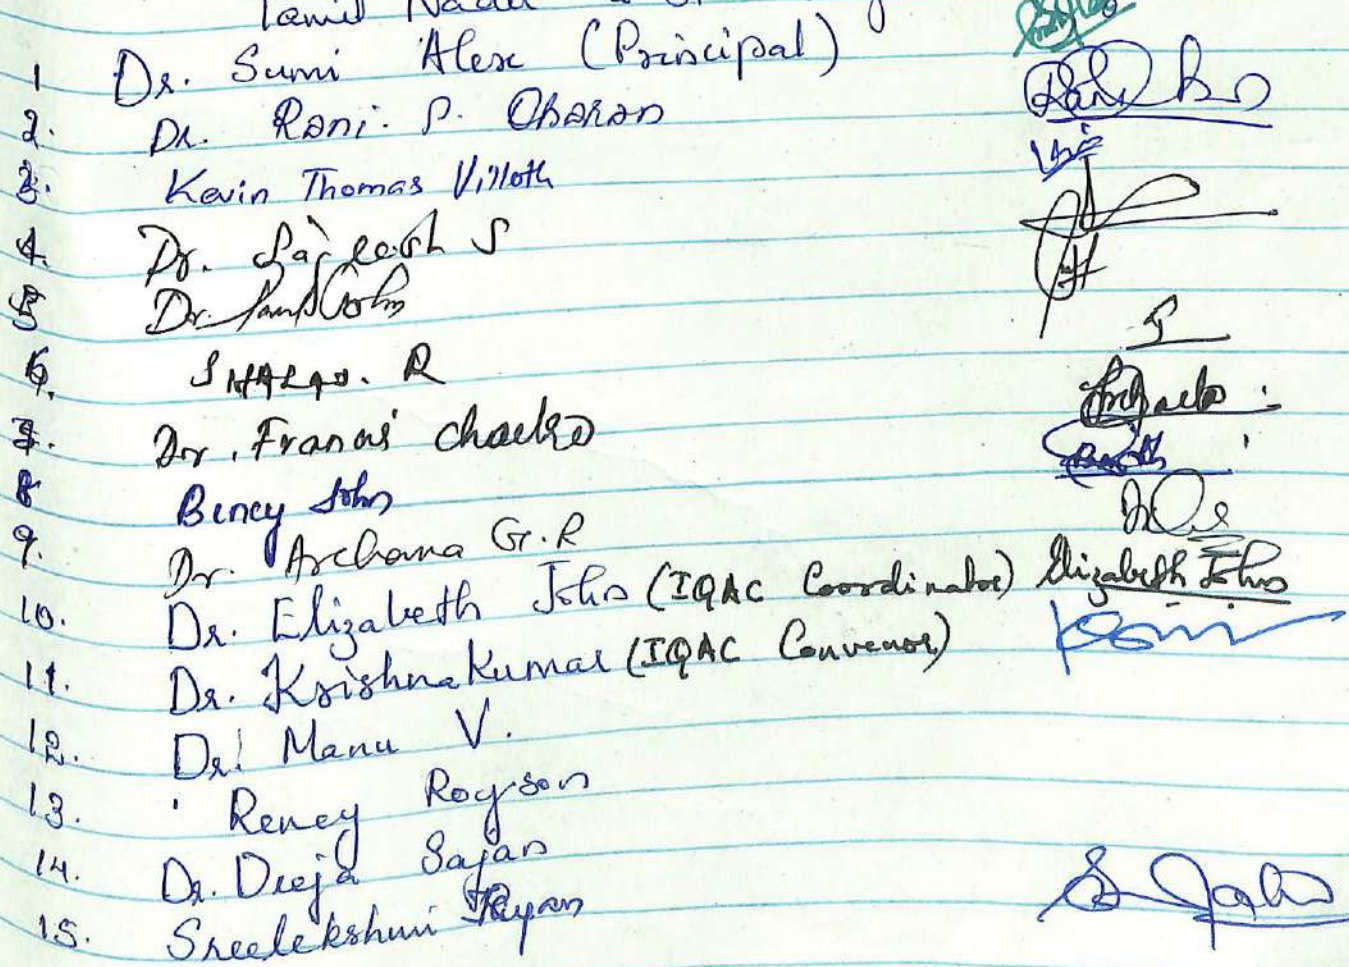 Tamil Nadu
1 Dr. Sumi Alex (Principal)
2. Dr. Rani. P. Oharan
3. Kevin Thomas Villoth
4. Dr. Sajeesh S
5 Dr. John
6. R
7. Dr. Francis Chacko
8 Bency John
9. Dr. Archana G.R
10. Dr. Elizabeth John (IQAC Coordinator) Elizabeth John
11. Dr. Krishnakumar (IQAC Convenor)
12. Dr. Manu V.
13. Reney Royson
14. Dr. Deeja Sajan
15. Sreelekshmi